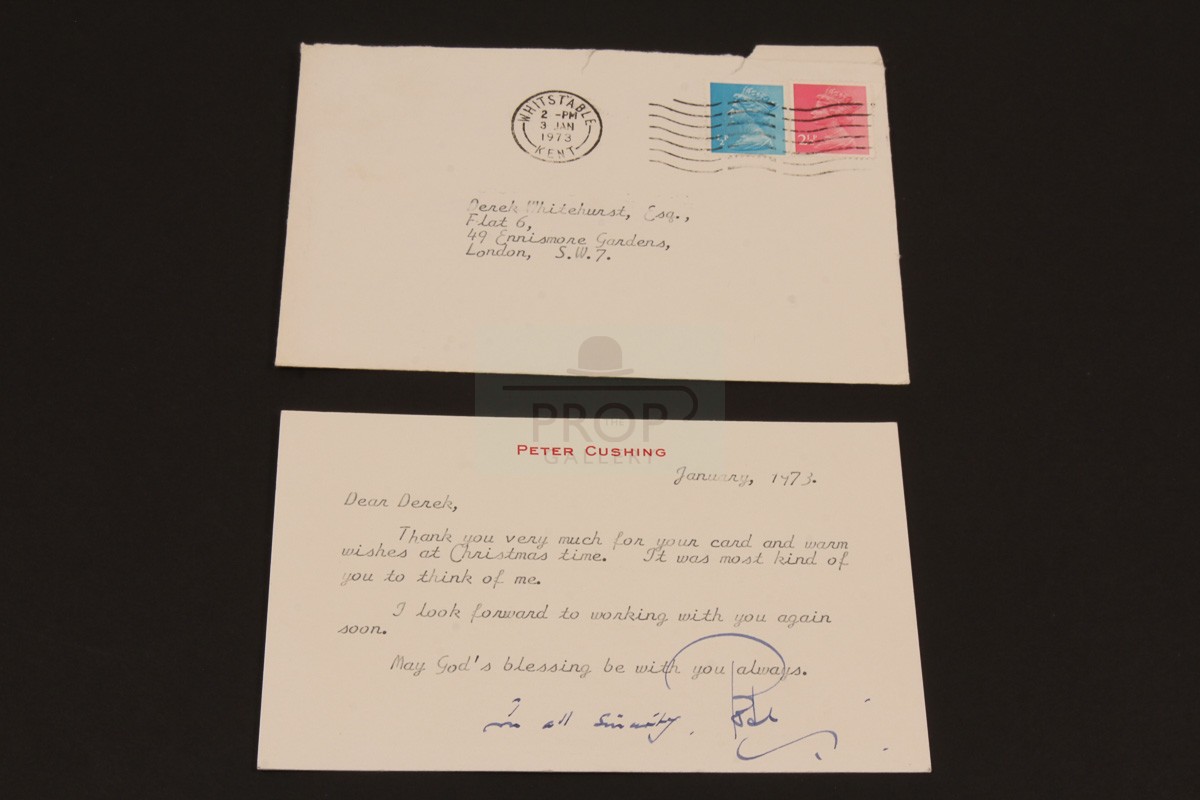 WHITSTABLE
2 -PM
3 JAN
1973
KENT
2½
Derek Whitehurst, Esq.,
Flat 6,
49 Ennismore Gardens,
London, S.W.7.
THE
PROP
GALLERY
PETER CUSHING
January, 1973.
Dear Derek,
Thank you very much for your card and warm
wishes at Christmas time. It was most kind of
you to think of me.
I look forward to working with you again
soon.
May God's blessing be with you always.
In all sincerity, Peter